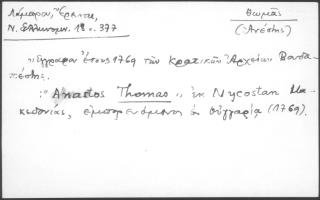 Λάμπρου, Ἔρευναι, Θωμᾶς
Ν. Ἑλληνομν. 18 σ. 377 (Ἀνέστης)
ἔγγραφα ἔτους 1769 τῶν κρατικῶν Ἀρχείων Βουδα-
πέστης.
: "Anastos Thomas" ἐκ Nycostan Μα-
κεδονίας, ἐμπορευόμενος ἐν Οὑγγαρίᾳ (1769).